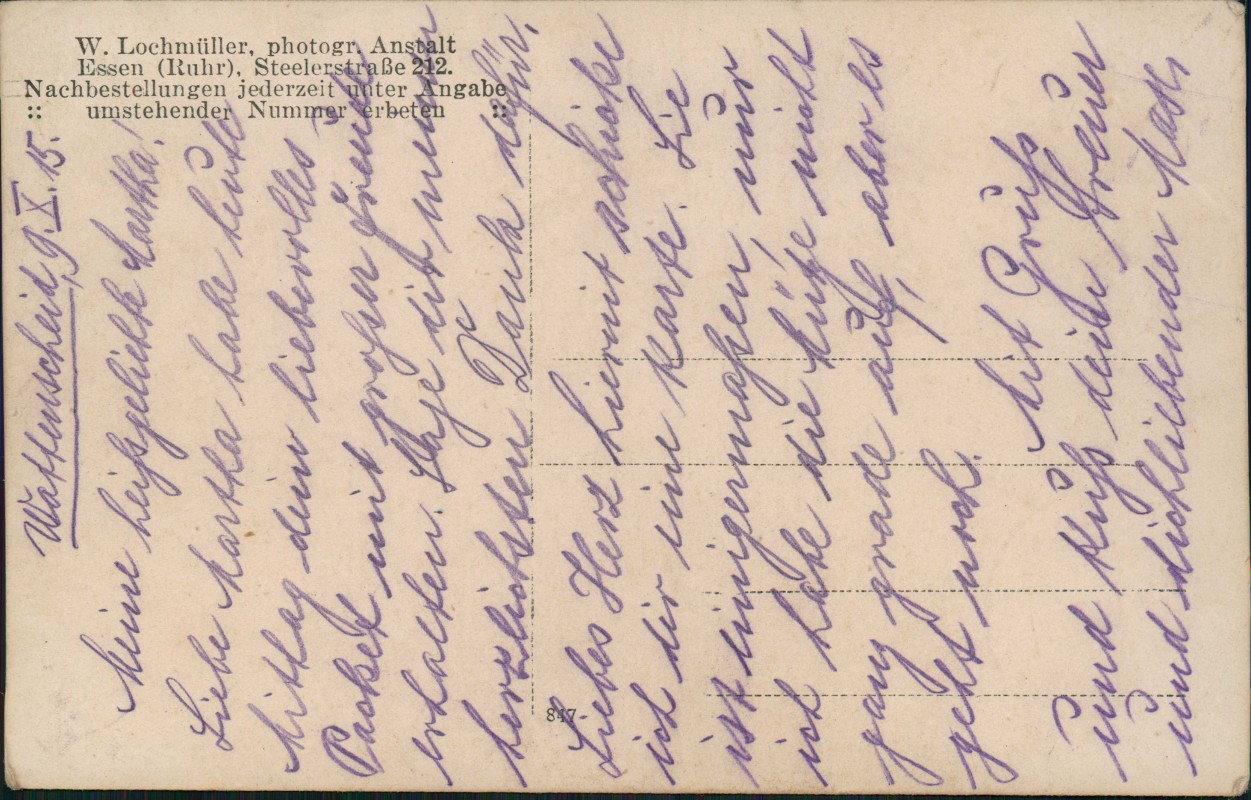 W. Lochmüller, photogr. Anstalt
Essen (Ruhr), Steelerstraße 212.
Nachbestellungen jederzeit unter Angabe
:: umstehender Nummer erbeten ::
847
Wattenscheid, 9.X.15.
Meine heißgeliebte Martha!
Liebe Martha habe heute
Mittag dein liebevolles
Packet mit großer Freude
erhalten. Sage dir meinen
herzlichsten Dank dafür.
Liebes Herz hiermit schicke
ich dir eine Karte. Sie
ist einigermaßen, nur
ich habe die Mütze nicht
ganz grade auf, aber es
geht noch.
Mit Gruß
und Kuß dein Treuer
und dichliebender